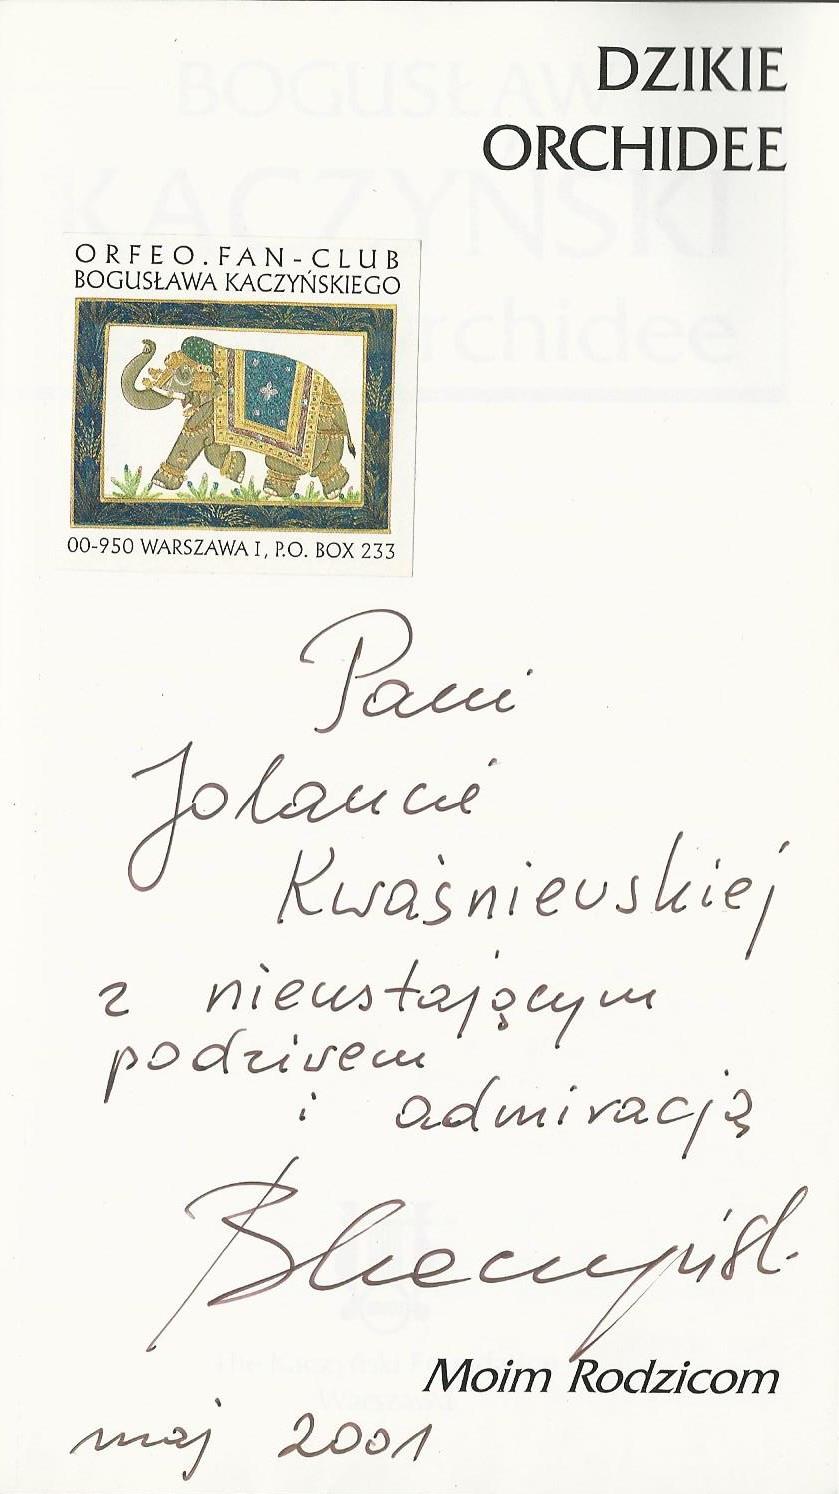 DZIKIE
ORCHIDEE
ORFEO.FAN-CLUB
BOGUSŁAWA KACZYŃSKIEGO
00-950 WARSZAWA I, P.O. BOX 233
Pani
Jolancie
Kwaśniewskiej
z nieustającym
podziwem
i admiracją
Moim Rodzicom
maj 2001